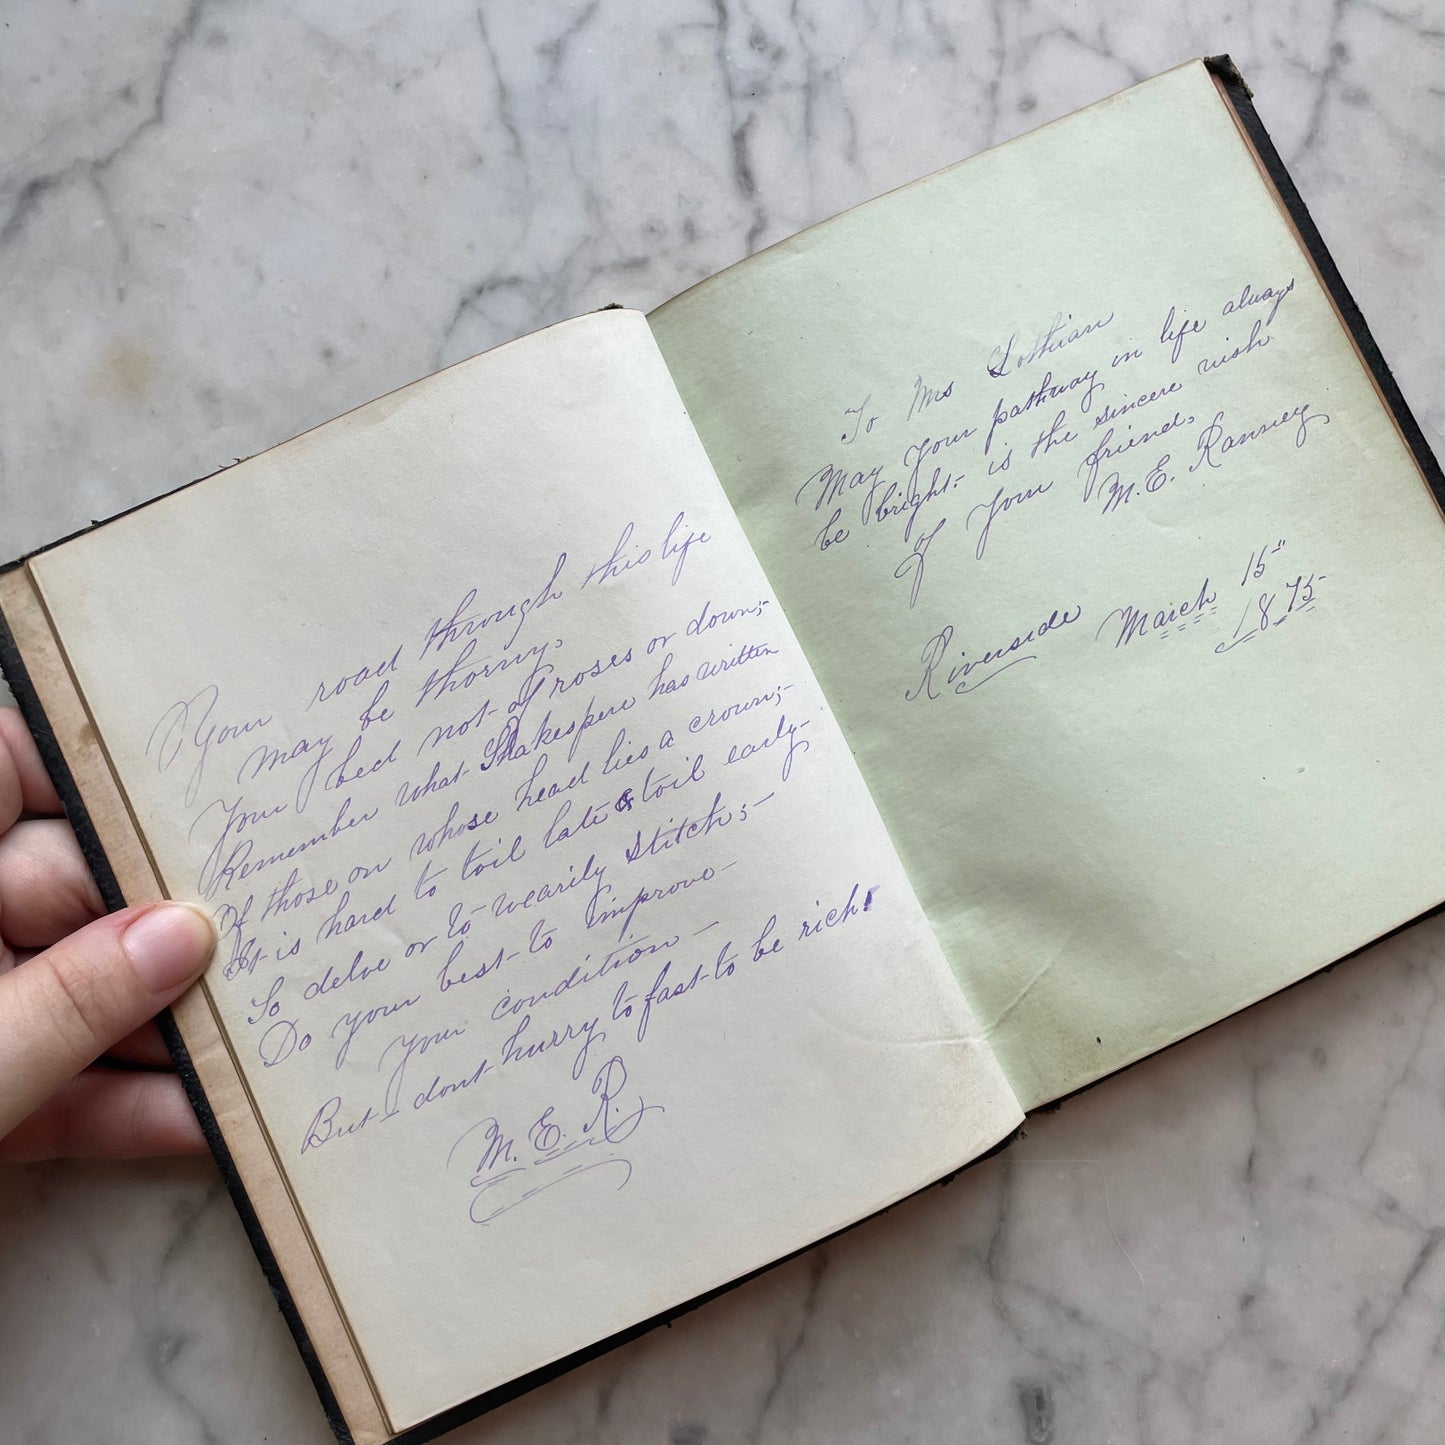 Your road through this life
may be thorny,
Your bed not of roses or down;-
Remember what Shakespere has written
Of those on whose head lies a crown;-
It is hard to toil late & toil early-
To delve or to wearily stitch;-
Do your best to improve-
your condition-
But- dont hurry to fast to be rich.
M. E. R.
To Mrs Lothian
May your pathway in life always
be bright- is the sincere wish
of your friend,
M. E. Ranney
Riverside March 15"
1875